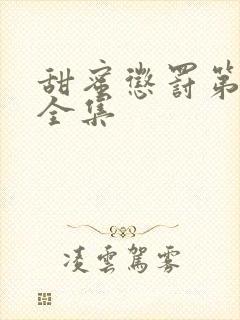 甜蜜懲罰第
全集
凌雲駕霧